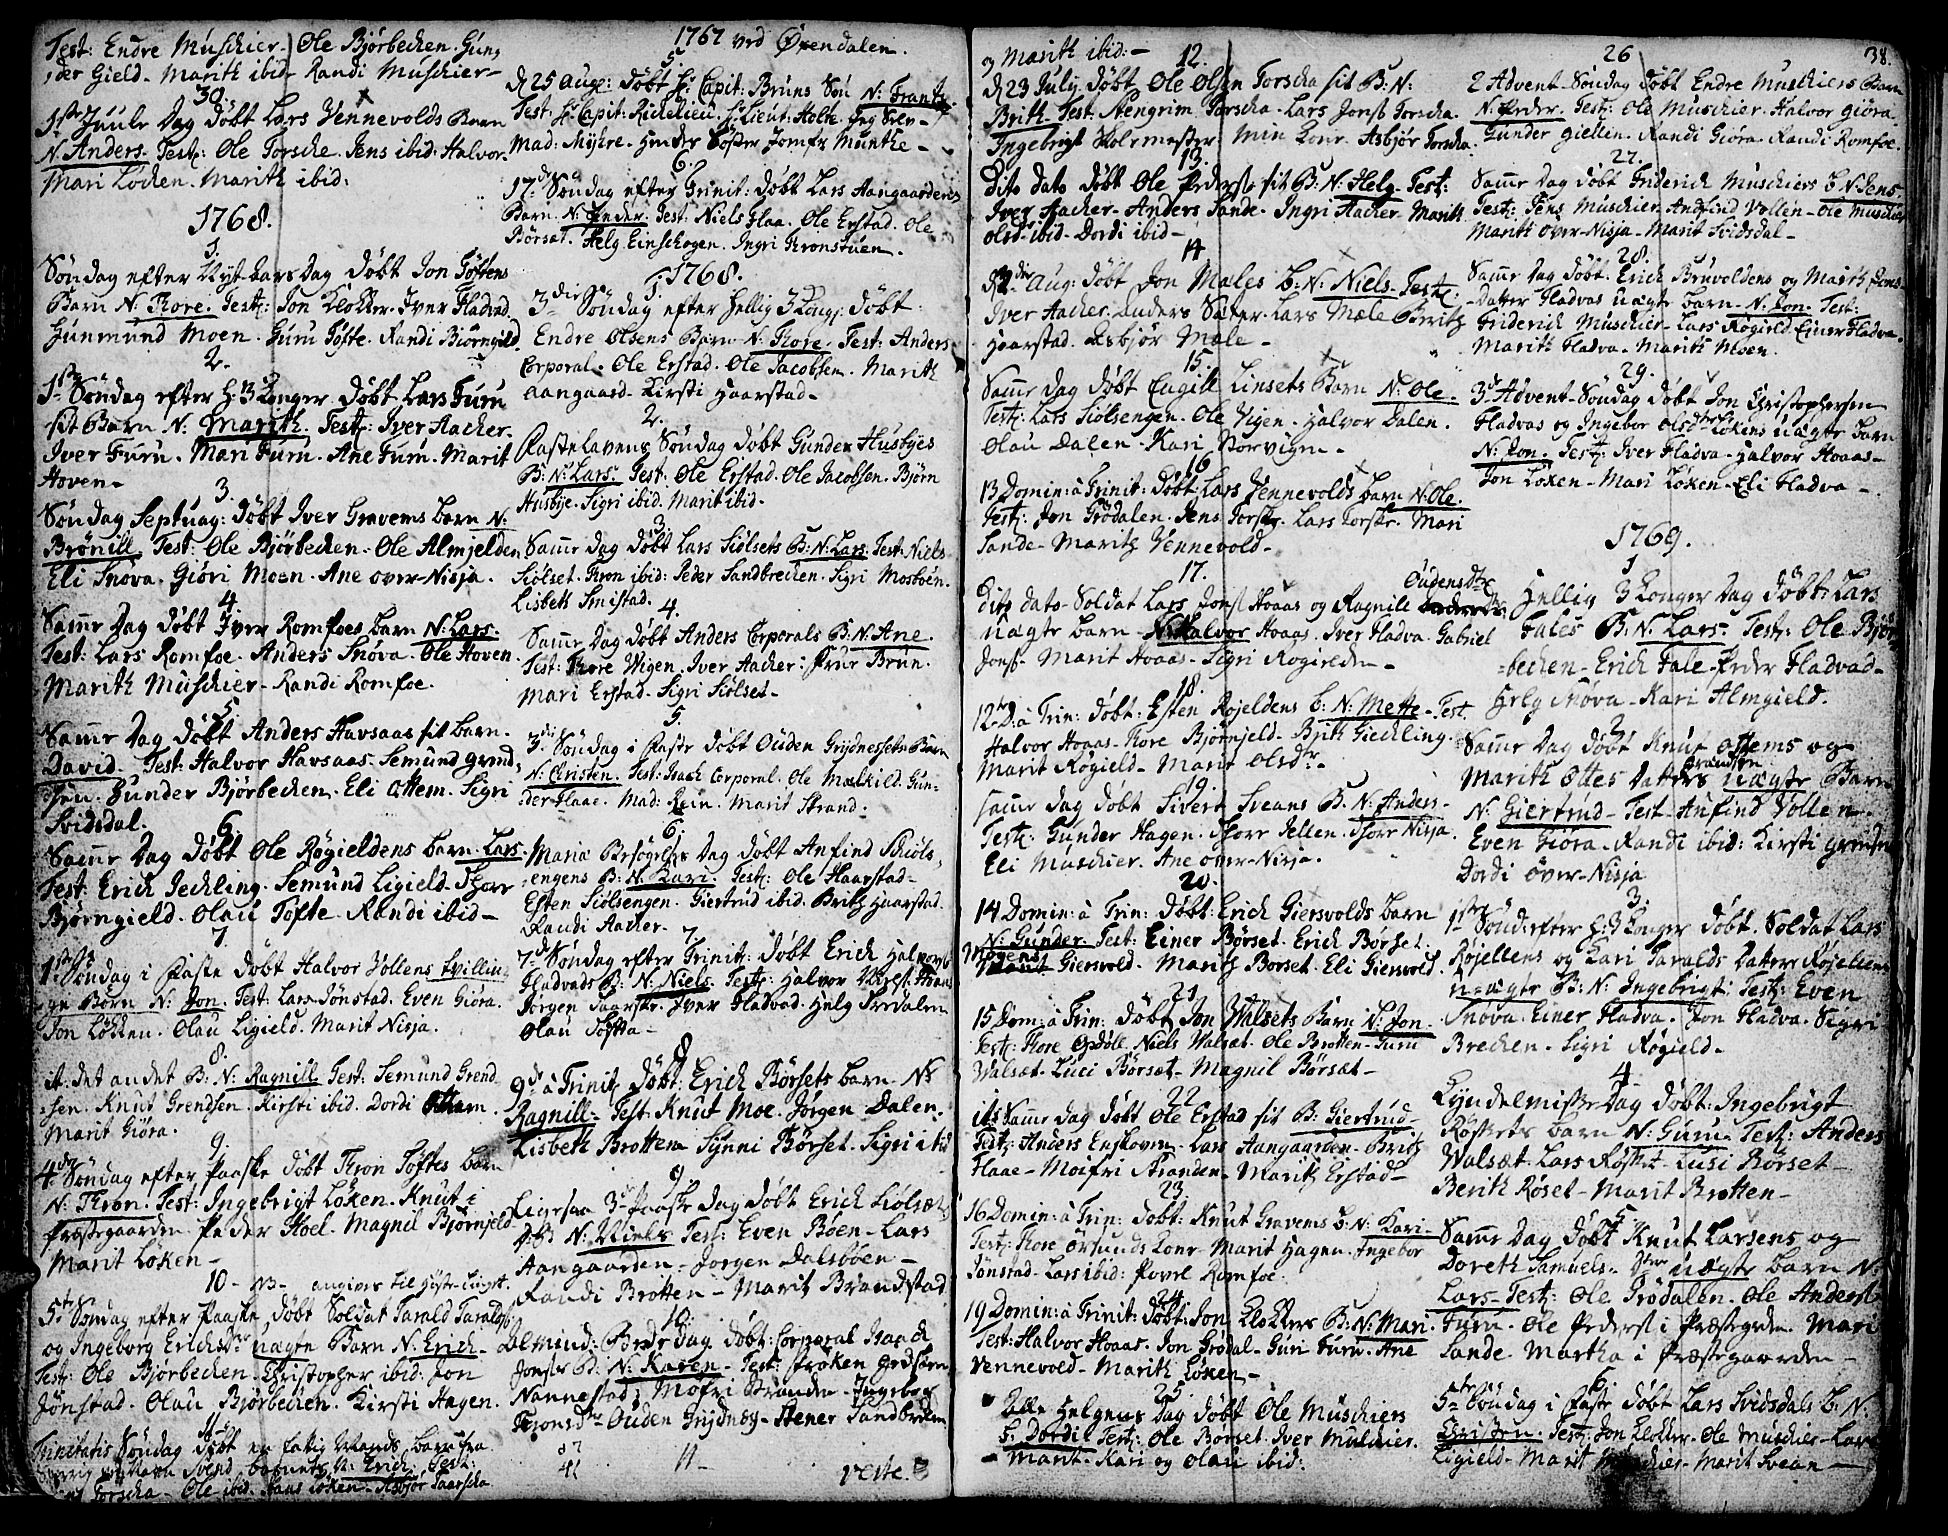 Test: Endre Muschier. Ole Bjørbechen. Gun-
der Gield. Marith ibid. Randi Muschier
30.
1ste Juule Dag døbt Lars Vennevolds Barn
N. Anders. Test: Ole Torske. Jens ibid: Halvor
Mari Løcken. Marith ibid:
1768.
1.
Søndag efter Nyt-aars Dag døbt Jon Tøftens
Barn N: Thore. Test: Jon Klokker. Iver Fladvad
Gunmund Moen. Guru Tøfte. Randi Biørngield
2.
1ste Søndag efter H: 3 Konger døbt Lars Furu
sit Barn N. Marith. Test: Iver Aacher.
Iver Furu. Mari Furu. Ane Furu. Marit
Hoven
3.
Søndag Septuag: døbt Iver Gravems Barn N.
Brønill Test: Ole Bjørbechen. Ole Almjelden
Eli Snova. Giøri Moen. Ane over-Nisja.
4.
Samme Dag døbt Iver Romfoes Barn N: Lars.
Test: Lars Romfoe. Anders Snova. Ole Hoven
Marith Muschier. Randi Romfoe.
5.
Samme Dag døbt Anders Havsaas sit Barn
David. Test: Halvor Havsaas. Semund Grend-
sen. Gunder Bjørbechen. Eli Ottem. Sigri
Svidsdal.
6.
Samme Dag døbt Ole Røgieldens Barn Lars
Test: Erich Jechling. Semund Ligield.
Bjørngield. Olau Tøfte. Randi ibid
7.
1ste Søndag i Faste døbt Halvor Vollens tvillin-
ge Børn N: Jon. Test: Lars Jønstad. Even Giøra.
Jon Løkken. Olau Ligield. Marit Nisja.
8.
it: det andet B: N: Ragnill Test: Semund Grend-
sen. Knut Grendsen. Kirsti ibid. Dordi Ottem.
Marit Giøra.
9.
4de Søndag efter Paaske døbt Thron Tøftes Barn
N: Thron. Test: Ingebrigt Løken. Knut i
Præstegaarden. Peder Hoel. Magnil Bjørnjeld
Marit Løken
10 - NB - angives til
5te Søndag efter Paaske døbt Soldat Tarald Taralds
og Ingeborg Erichsdtr uægte Barn N. Erich
Test: Ole Bjørbechen. Christopher ibid: Jon
Jønstad. Olau Bjørbechen. Kirsti Hagen.
11
Trinitatis Søndag døbt en fattig Mands Barn fra
Svend N: Erich. Test:
Torscha. Ole ibid. Hans Løken. Asbjør Taarscha

1767 ved Øxendalen.
5.
d 25 Aug: døbt Hr Capit: Bruns Søn N: Frantz
Test: Hr Capit: Richelieu. Hr Lieut: Holte. Jeg selv
Mad: Myhre. Hendes Søster Jomfr Munthe
6.
17de Søndag efter Trinit: døbt Lars Aangaardens
Barn. N: Peder. Test: Niels Flaa. Ole Erstad. Ole
Børsæt. Helg Einschogen. Ingri Thronstuen.
1768.
1.
3die Søndag efter Hellig 3 Kong: døbt
Endre Olsens Barn N: Thore. Test: Anders
Corporal. Ole Erstad. Ole Jacobsen. Marith
Aangaard. Kirsti Haarstad
2.
Fastelavens Søndag døbt Gunder Husbyes
B: N: Lars. Test: Ole Erstad. Ole Jacobsen. Bjørn
Husbye. Sigri ibid. Marit ibid.
3.
Samme Dag døbt Lars Siølsets B: N: Lars. Test: Niels
Siølset. Thron ibid: Peder Sandbrechen. Sigri Mosboen.
Lisbeth Smistad.
4.
Samme Dag døbt Anders Corporals B: N: Ane.
Test: Thore Wigen. Iver Aacher: Frue Brun.
Mari Erstad. Sigri Siølset
5.
3die Søndag i Faste døbt Ouden Grydnessets Barn
N: Christen. Test: Isach Corporal. Ole Mælkild. Gun-
der Flaae. Mad: Rein. Marit Strand.
6.
Mariæ Besøgelses Dag døbt Anfind Schiøls-
engens B: N: Kari. Test: Ole Haarstad
Esten Siølsengen. Giertrud ibid. Brith Haarstad.
Randi Aacher.
7.
7de Søndag efter Trinit: døbt Erich Halvors
Fladvads B: N: Niels. Test: Halvor
Jørgen Taarske. Iver Fladvad. Helg Tredalen
Olau Tøfta
8
9de à Trinit døbt Erich Børsets Barn N:
Ragnill. Test: Knut Moe. Jørgen Dalen.
Lisbeth Brottem Synni Børset. Sigri ibid
9
Ligesaa 3de Paaske Dag døbt Erich Siølset
B: N: Niels Test: Even Boen. Lars
Aangaarden. Jørgen Dalsbøen
Randi Brotten. Marit Brandstad
10.
Almind: Bede Dag døbt: Corporal Isach
Jonsens B: N: Karen. Test: Frøken
Nannestad. Mofri Stranden. Ingebor
Thronsdtr Ouden Grydnes. Stener Sandbrechen
11
reste. 3

3 Marith ibid:
12.
d 23 July døbt Ole Olsen Torscha sit B: N:
Brith Test: Hengrim Torscha. Lars Jons Torscha.
Ingebrigt Skolemester. Min Kone. Asbjør Torscha
13.
Dito dato døbt Ole Peders sit B: N: Helg. Test:
Iver Aacher. Anders Sande. Ingri Aacher. Marit
Olsd ibid. Dordi ibid
14
Aug: døbt Jon Mæles B: N: Niels. Test:
Iver Aacher. Anders Sæter. Lars Mæle Brith
Haarstad. Asbjør Mæle
15.
Samme Dag døbt Engill Linsets Barn N: Ole.
Test: Lars Siølsengen. Ole Vigen. Halvor Dalen.
Olau Dalen. Kari Norvign
16
13 Domin: à Trinit: døbt: Lars Vennevolds Barn N: Ole.
Test: Jon Grødalen. Jens Torske. Lars Torske. Mari
Sande. Marith Vennevold
17.
Oudensdtr
Dito dato Soldat Lars Jons Hoaas og Ragnill
uægte Barn N: Halvor Hoaas. Iver Fladva. Gabriel
Jons. Marit Hoaas. Sigri Rogielden
18.
12te D: à Trin: døbt: Esten Røjeldens B: N: Mette. Test:
Halvor Hoaas. Thore Bjørnjeld. Brith Giechling.
Marit Røgield. Marit Olsdtr
19.
Samme Dag døbt Sivert Sveans B: N: Anders
Test: Gunder Hagen. Nisja.
Eli Muschier. Ane over-Nisja.
20.
14 Domin: à Trin: døbt: Erich Giersvolds Barn
N: Gunder. Test: Einer Børset. Erich Børset.
Mogens
Giersvold. Marith Børset. Eli Giersvold.
21
15 Dom: à Trin: døbt Jon Walsets Barn N: Jon.
Test: Thore Opdøll. Niels Walsæt. Ole Brotten. Guru
Walsæt. Luci Børsæt. Magnil Børsæt
22
its Samme Dag døbt Ole Erstad sit B: Giertrud
Test: Anders Enskoven. Lars Aangaarden. Brith
Flaae. Moifri Stranden. Marith Erstad
23.
16 Domin: à Trin: døbt: Knut Gravems B: N: Kari
Test: Thore Ørsunds Kone. Marit Hagen. Ingebor
Jønstad. Lars ibid: Povel Romfoe.
24
19 Domin: à Trinit: døbt: Jon Klokkers B: N: Mari.
Test: Halvor Hoaas. Jon Grødal. Guri Furu. Ane
Vennevold. Marith Løken
25.
Alle Helgens Dag døbt Ole Muschiers
B: Dordi Test: Ole Børset. Iver Muschier.
Marit. Kari og Olau ibid:

26 38.
2 Advent Søndag døbt Endre Muschiers Barn
N: Peder. Test: Ole Muschier. Halvor Giøra
Gunder Giellen. Randi Giøra. Randi Romfoe.
27.
Samme Dag døbt Friderich Muschiers B: N: Jens
Test: Jens Muschier. Andfind Vollen. Ole Muschier
Marith over-Nisja. Marit Svidsdal
28.
Samme Dag døbt. Erich Bruvoldens og Marith Jons-
Datter Fladvas uægte Barn. N: Jon. Test:
Friderich Muschier. Lars Røgield. Einer Fladva.
Marith Fladva. Marith Moen.
29.
3de Advent-Søndag døbt Jon Christophersen
Fladvas og Ingebor Olsdtr Løkens uægte Barn
N: Jon. Test: Iver Fladva. Halvor Hoaas
Jon Løken. Mari Løken. Eli Fladva
1769.
1
Hellig 3 Konger Dag døbt: Lars
Fales B: N: Lars. Test: Ole Bjør-
bechen. Erich Fale. Peder Fladvad
Helg Snova. Kari Almgield.
2.
Samme Dag døbt Knut Ottems og
Marith Ottes Datters uægte Barn
N: Giertrud. Test: Anfind Vollen.
Even Giøra. Randi ibid: Kirsti Grendsen
Dordi over-Nisja
3.
1ste Sønd: efter H: 3 Konger døbt. Soldat Lars
Røjellens og Kari Taralds Datters Røjellens
uægte B: N: Ingebrigt. Test: Even
Snova. Einer Fladva. Jon Fladva. Sigri
Brechen. Sigri Røgield
4
Kyndelmisse Dag døbt: Ingebrigt
Røssets Barn N: Guru. Test: Anders
Walsæt. Lars Røset. Lusi Børset
Berith Røset. Marit Brotten
5.
Samme Dag døbt Knut Larsens og
Doreth Samuels- Dtter uægte Barn N:
Lars. Test: Ole Grødalen. Ole Anders
Furu. Ole Peders i Præstegrden. Mari
Sande. Martha i Præstegaarden
6.
5te Søndag i Faste døbt Lars Svidsdals B: N:
Christen. Test: Jon Klokker. Ole Muschier. Lars
Ligield. Marit Muschier. Marit Svean